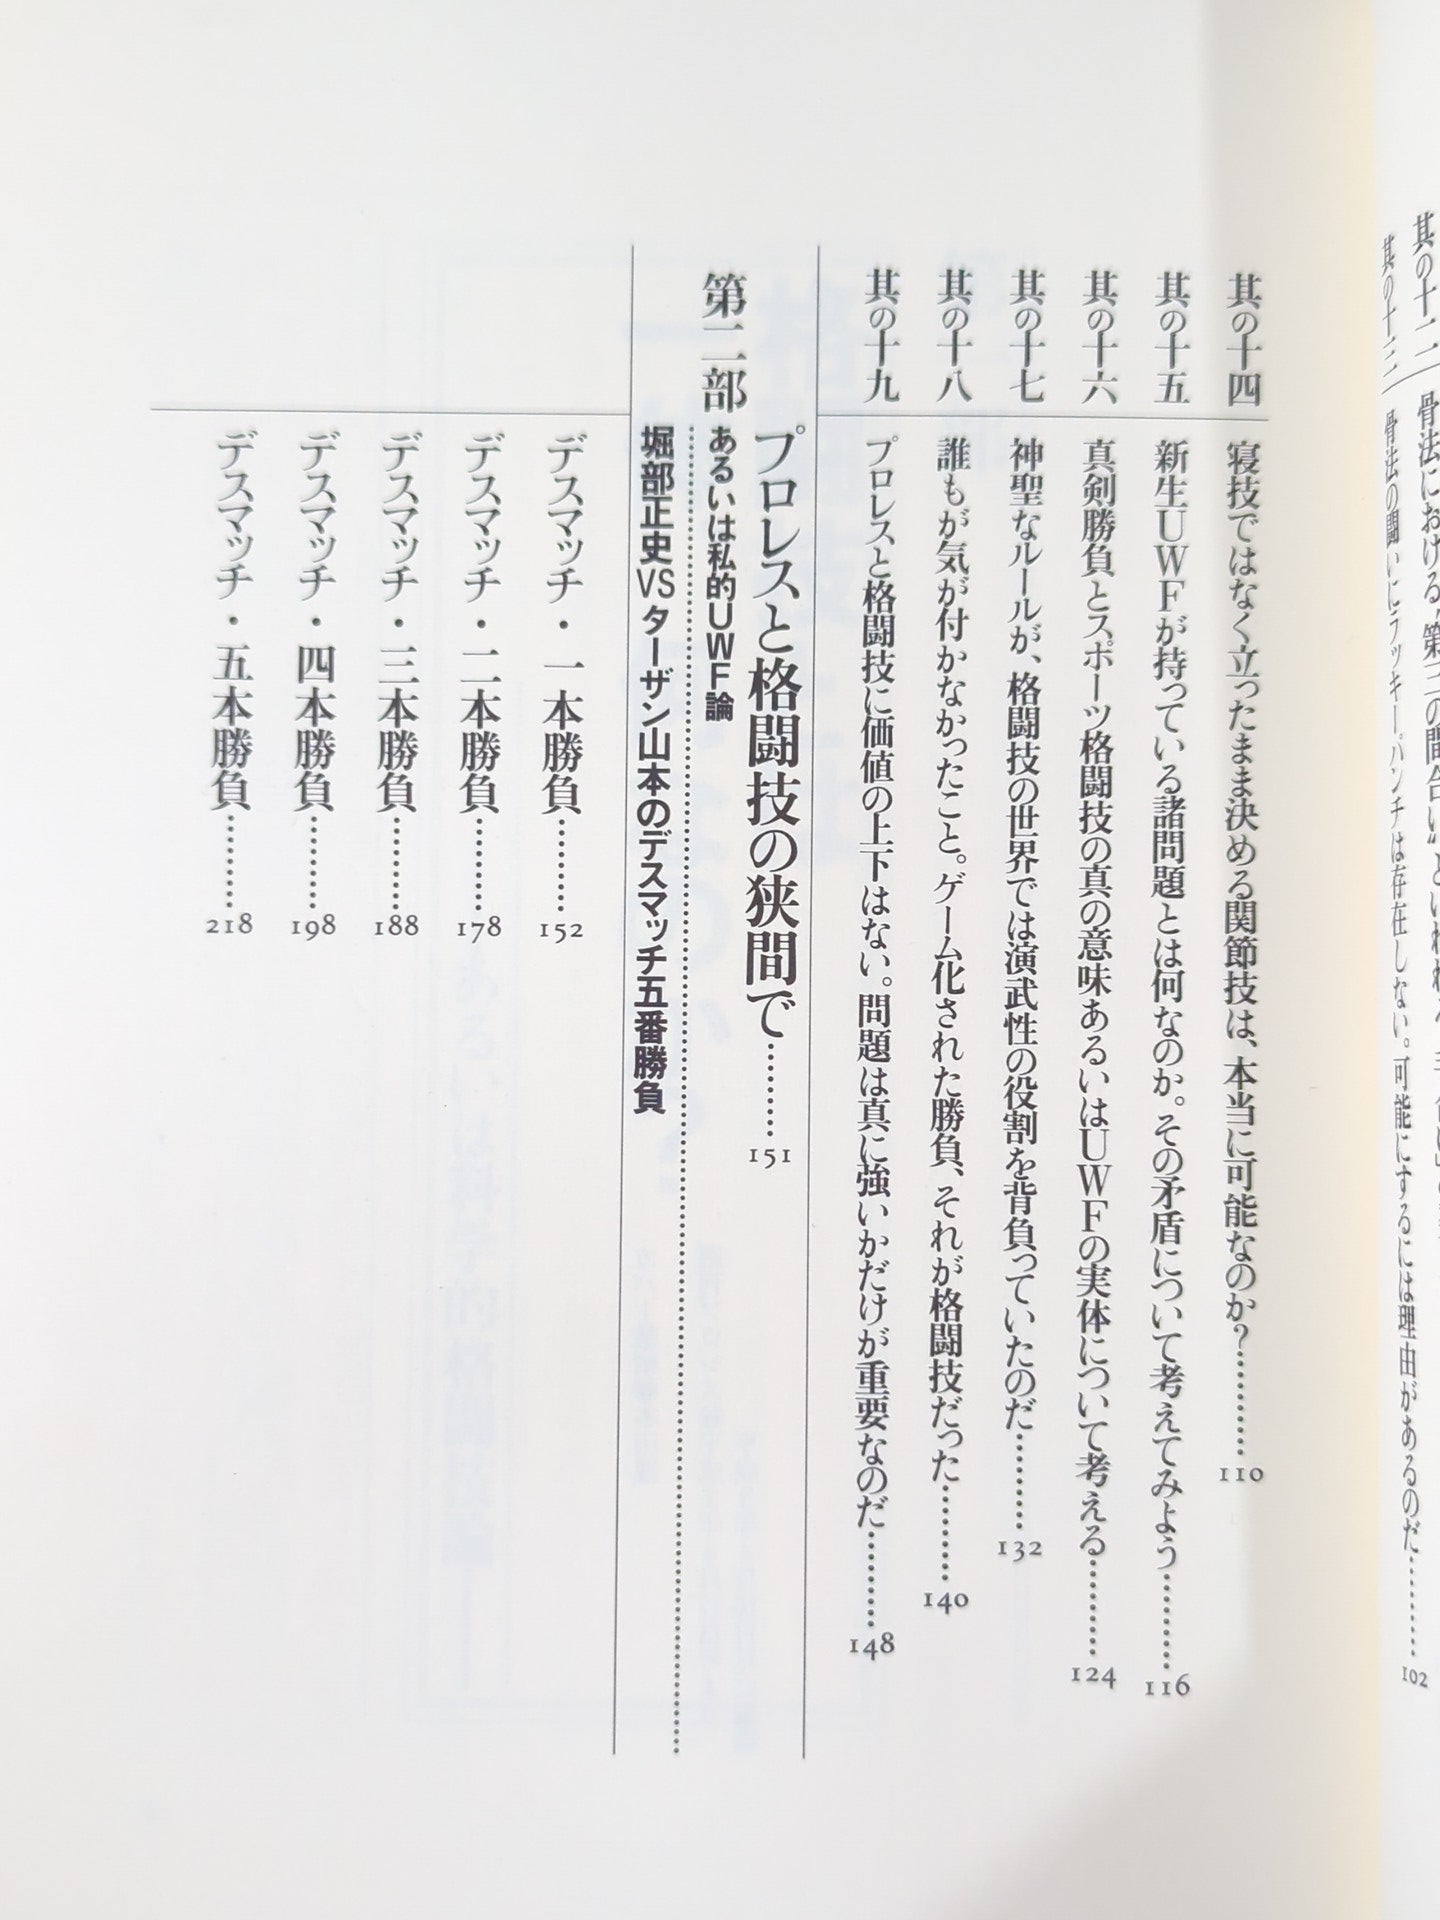 其の十二
骨法における“第三の間合い”
其の十三 骨法の闘いにラッキーパンチは存在しない。可能にするには理由があるのだ………102
其の十四 寝技ではなく立ったまま決める関節技は、本当に可能なのか?………110
其の十五 新生UWFが持っている諸問題とは何なのか。その矛盾について考えてみよう………116
其の十六 真剣勝負とスポーツ格闘技の真の意味あるいはUWFの実体について考える………124
其の十七 神聖なルールが、格闘技の世界では演武性の役割を背負っていたのだ………132
其の十八 誰もが気が付かなかったこと。ゲーム化された勝負、それが格闘技だった………140
其の十九 プロレスと格闘技に価値の上下はない。問題は真に強いかだけが重要なのだ………148
第二部 プロレスと格闘技の狭間で………151
あるいは私的UWF論
堀部正史VSターザン山本のデスマッチ五番勝負
デスマッチ・一本勝負………152
デスマッチ・二本勝負………178
デスマッチ・三本勝負………188
デスマッチ・四本勝負………198
デスマッチ・五本勝負………218